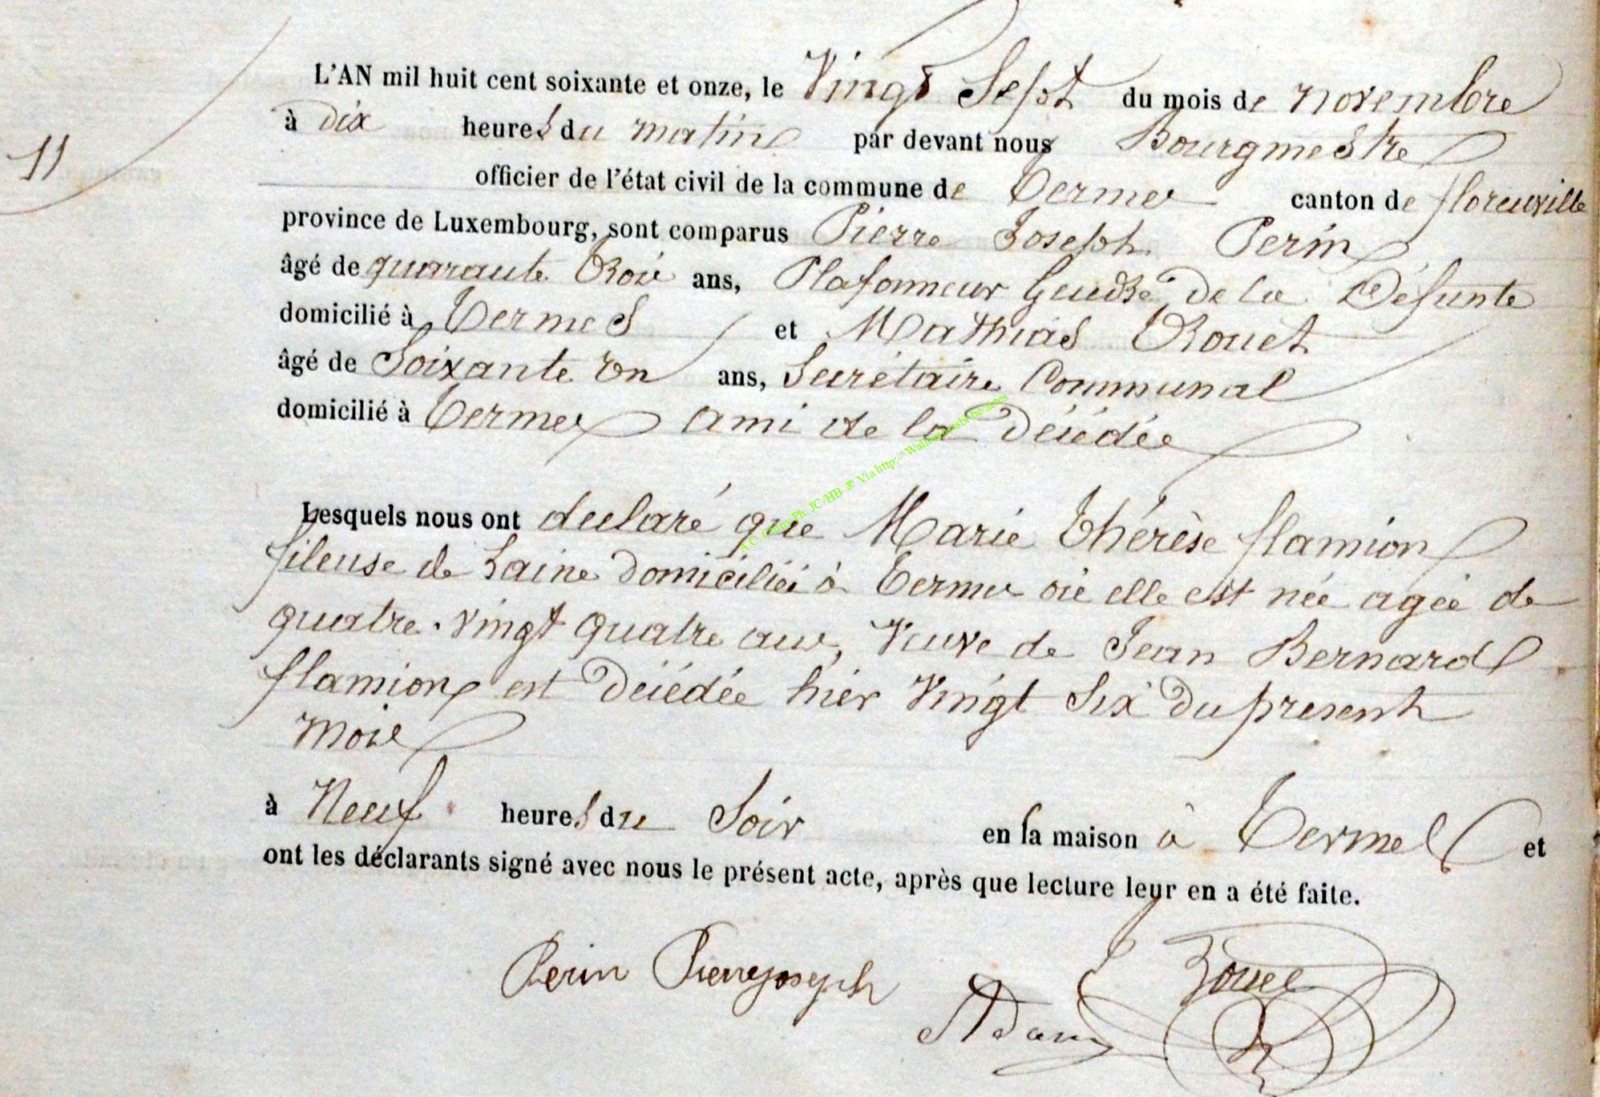 L'AN mil huit cent soixante et onze, le Vingt Sept du mois de novembre
11
à Dix heures du matin par devant nous Bourgmestre
officier de l'état civil de la commune de Termes canton de florenville
province de Luxembourg, sont comparus Pierre Joseph Perin
âgé de quarante trois ans, Plafonneur Gendre de la Défunte
domicilié à Termes et Mathias Rouet
âgé de Soixante un ans, Secrétaire Communal
domicilié à Termes ami de la Décédée
Lesquels nous ont declaré que Marie Thérèse flamion
fileuse de Laine Domiciliée à Termes où elle est née agée de
quatre-vingt quatre ans, Veuve de Jean Bernard
flamion est Décédée hier Vingt Six du present
mois
à Neuf heures du Soir en sa maison à Termes et
ont les déclarants signé avec nous le présent acte, après que lecture leur en a été faite.
Perin Pierrejoseph
Adam